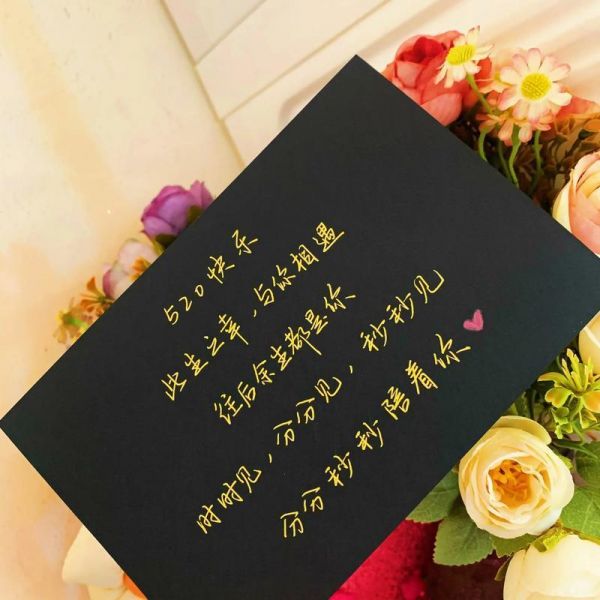 520快乐
此生之幸,与你相遇
往后余生都是你
时时见,分分见,秒秒见
分分秒秒陪着你